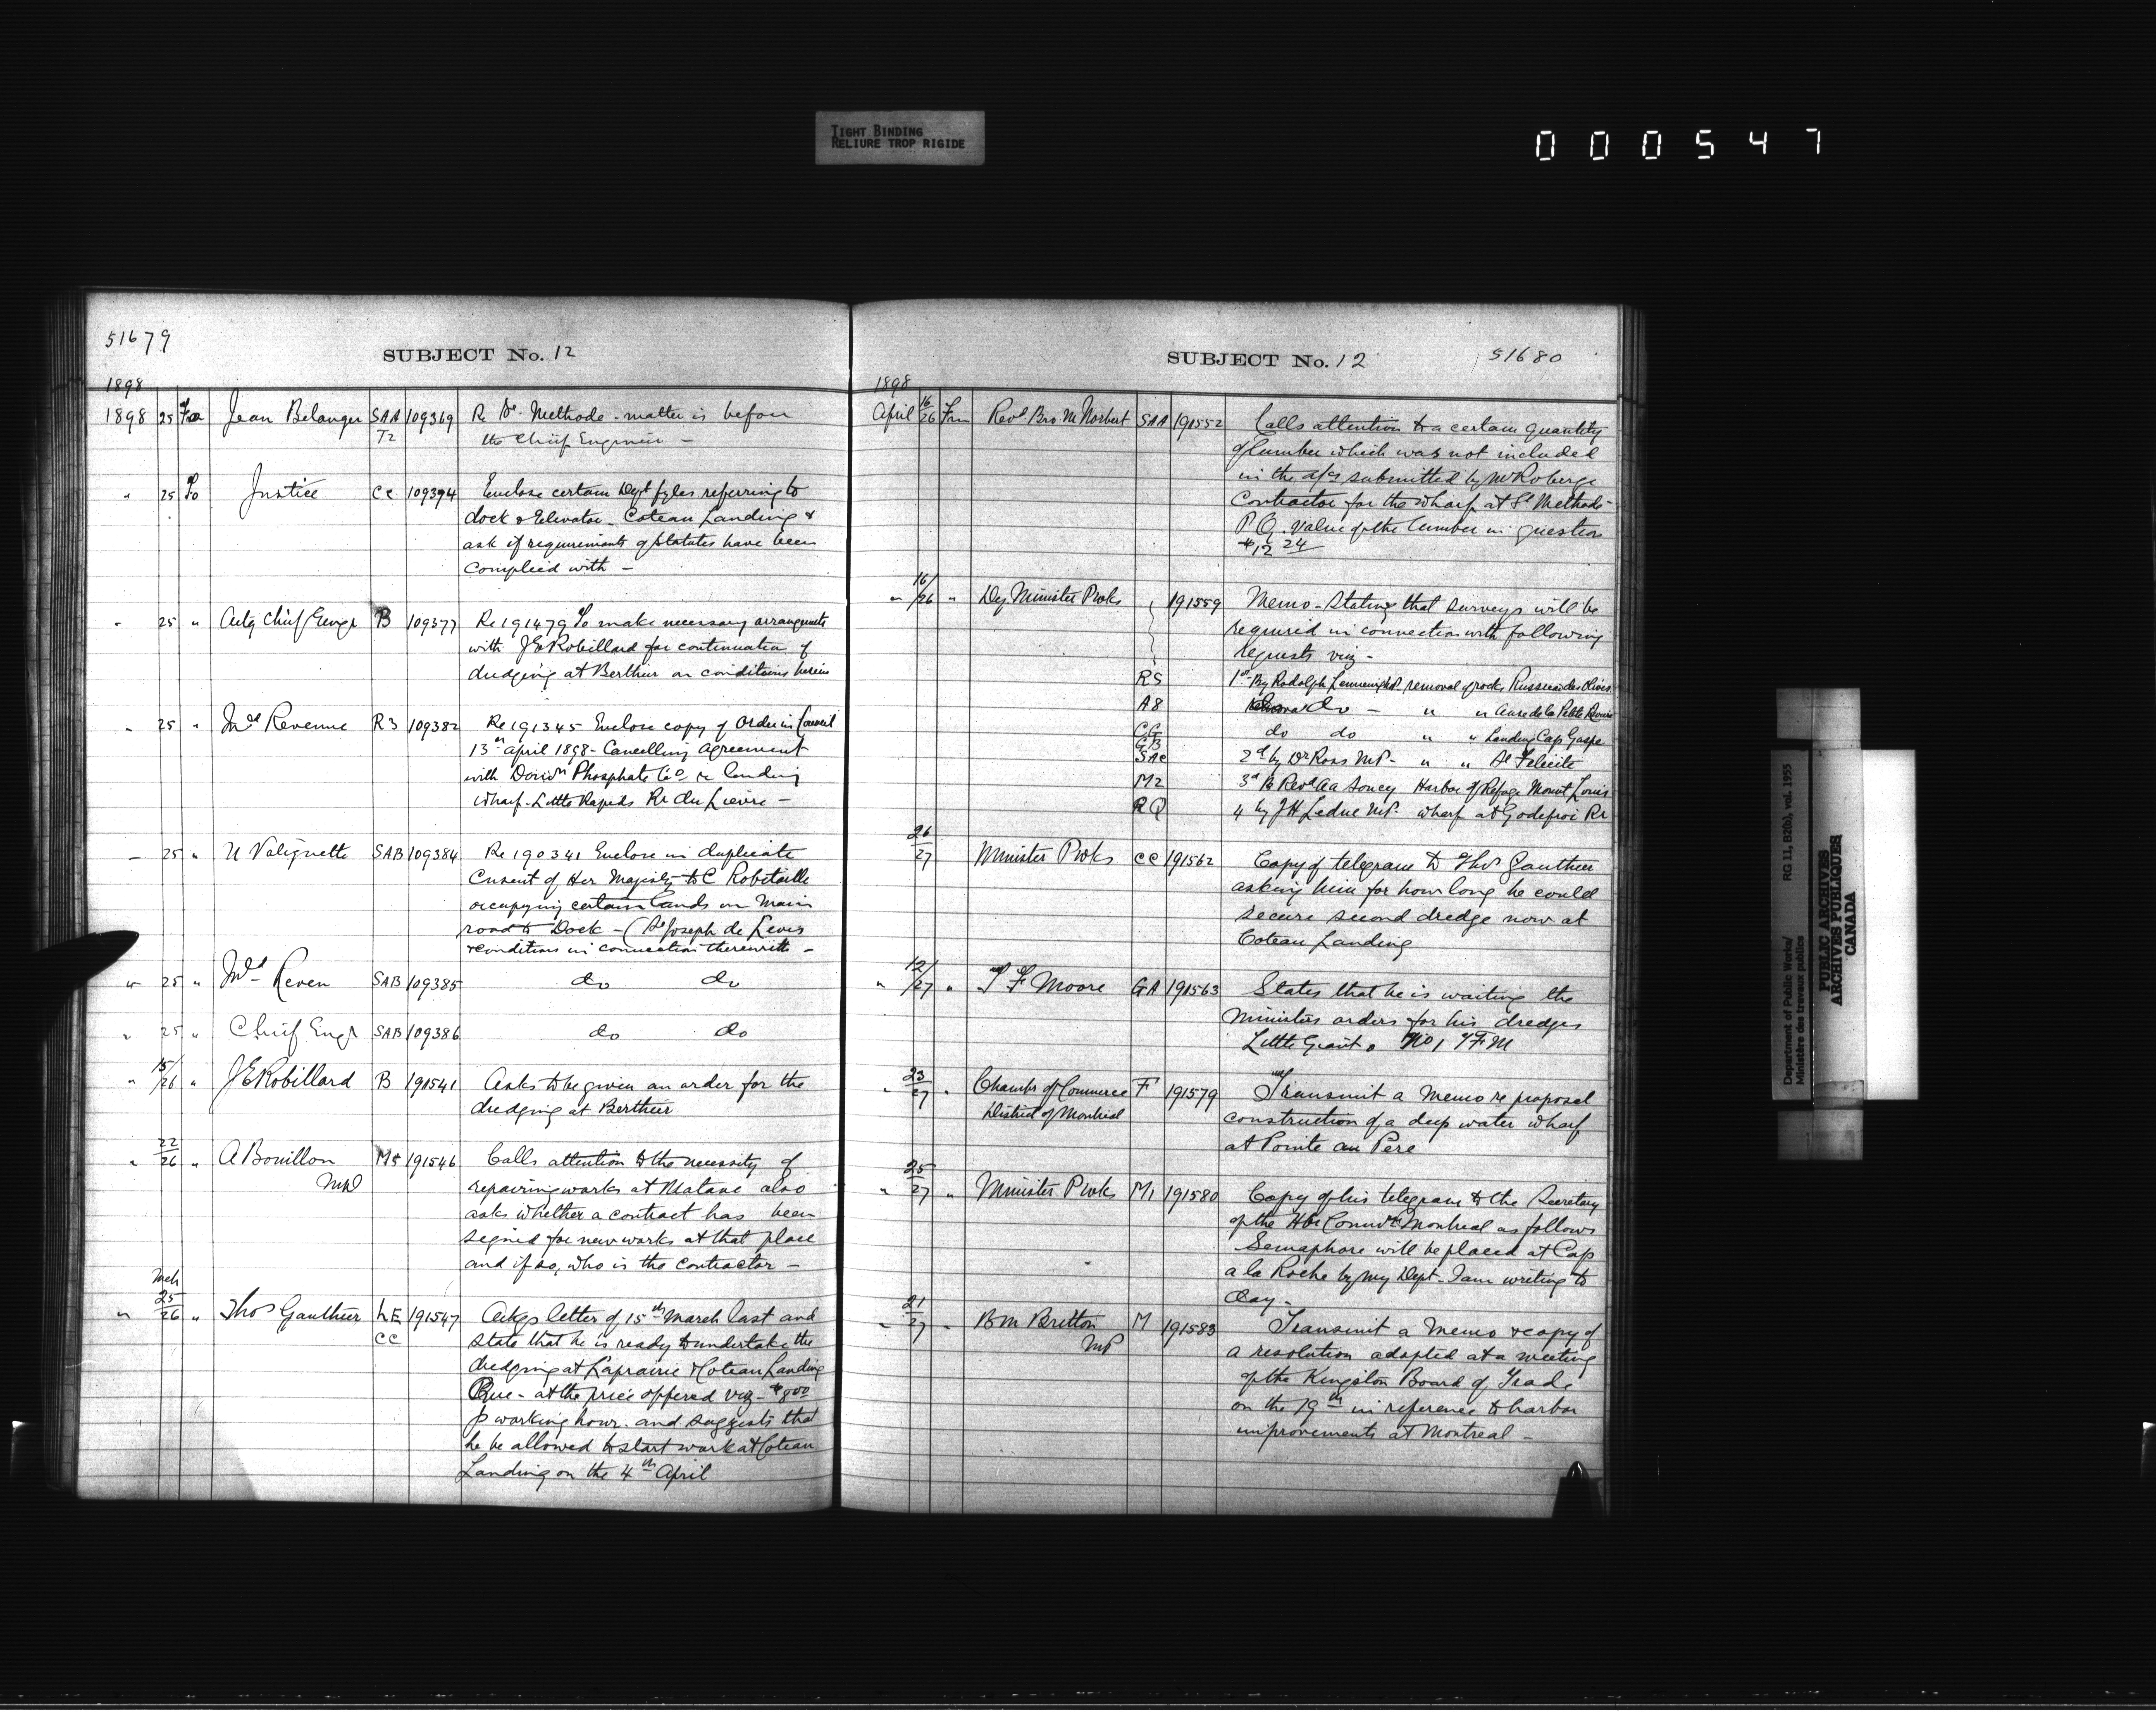 TIGHT BINDING
RELIURE TROP RIGIDE
000547
51679
SUBJECT No. 12
1898
1898 25 Jean Belanger SAA T2 109369 Re St. Methode - matter is before
the Chief Engineer -
" 25 To Justice CC 109394 Enclose certain Dept fyles referring to
dock & Elevator - Coteau Landing &
ask if requirements of Statutes have been
complied with -
" 25 " Actg Chief Engr B 109377 Re 191479 To make necessary arrangements
with J E Robillard for continuation of
dredging at Berthier on conditions herein
" 25 " Inld Revenue R3 109382 Re 191345 Enclose copy of Order in Council
13th April 1898 - Cancelling Agreement
with Domn Phosphate Co re landing
wharf - Little Rapids Rr du Lievre -
" 25 " N Valiquette SAB 109384 Re 190341 Enclose in duplicate
Consent of Her Majesty to C Robitaille
occupying certain lands on Main
road to Dock - (St Joseph de Levis
& conditions in connection therewith -
" 25 " Inld Reven SAB 109385 do do
" 25 " Chief Engr SAB 109386 do do
" 15/26 " J E Robillard B 191541 Asks to be given an order for the
dredging at Berthier
" 22/26 " A Bouillon M5 191546 Calls attention to the necessity of
repairing works at Matane also
asks whether a contract has been
signed for new works at that place
and if so, who is the contractor -
Mch
" 25/26 " Thos Gauthier LE CC 191547 Ackgs letter of 15th March last and
state that he is ready to undertake the
dredging at Laprairie & Coteau Landing
Que - at the price offered viz - $8.00
p working hour. and suggests that
he be allowed to start work at Coteau
Landing on the 4th April
SUBJECT No. 12
51680
1898
April 16/26 Frm Revd. Bro. M Norbert SAA 191552 Calls attention to a certain quantity
of lumber which was not included
in the a/cs submitted by Mr Roberge
Contractor for the wharf at St Methode -
P.Q. value of the lumber in question
$12 24
" 16/26 " Dy Minister P Wks 191559 Memo - Stating that surveys will be
required in connection with following
requests viz -
RS 1st By Rodolph Lemieux M.P. removal of rocks Ruisseau des Olives
A8 do - " " Anse de la Petite Riviere
CG do do " " Landing Cap Gaspe
GB
SAC 2d by Dr Ross M.P. - " " St Felicite
M2 3d B Revd Harbor of Refuge Mount Louis
RQ 4 by J H Leduc M.P. wharf at Godefroi Rr
26/27 Minister P Wks CC 191562 Copy of telegram to Thos Gauthier
asking him for how long he could
secure second dredge now at
Coteau Landing
" 12/27 " T F Moore GA 191563 States that he is waiting the
Ministers orders for his dredges
Little Giant & No 1 T F M
" 23/27 " Chambr of Commerce F 191579 Transmit a Memo re proposed
District of Montreal
construction of a deep water wharf
at Pointe au Père
" 25/27 " Minister P Wks M1 191580 Copy of his telegram to the Secretary
of the Hbr Commrs Montreal as follows
Semaphore will be placed at Cap
a la Roche by my Dept - I am writing to
day -
" 21/27 B M Britton M 191583 Transmit a Memo & copy of
MP
a resolution adopted at a meeting
of the Kingston Board of Trade
on the 19th in reference to harbor
improvements at Montreal -
Department of Public Works/
Ministère des travaux publics
RG 11, B2(b), vol. 1955
PUBLIC ARCHIVES
ARCHIVES PUBLIQUES
CANADA